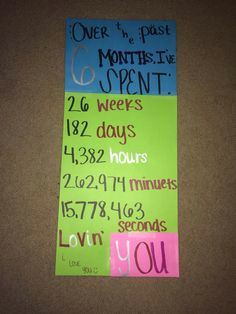 :Over the past
6 MONTHS, I've
SPENT:
26 weeks
182 days
4,382 hours
262,974 minuets
15,778,463
seconds
Lovin'
YOU
I LOVE
YOU :)